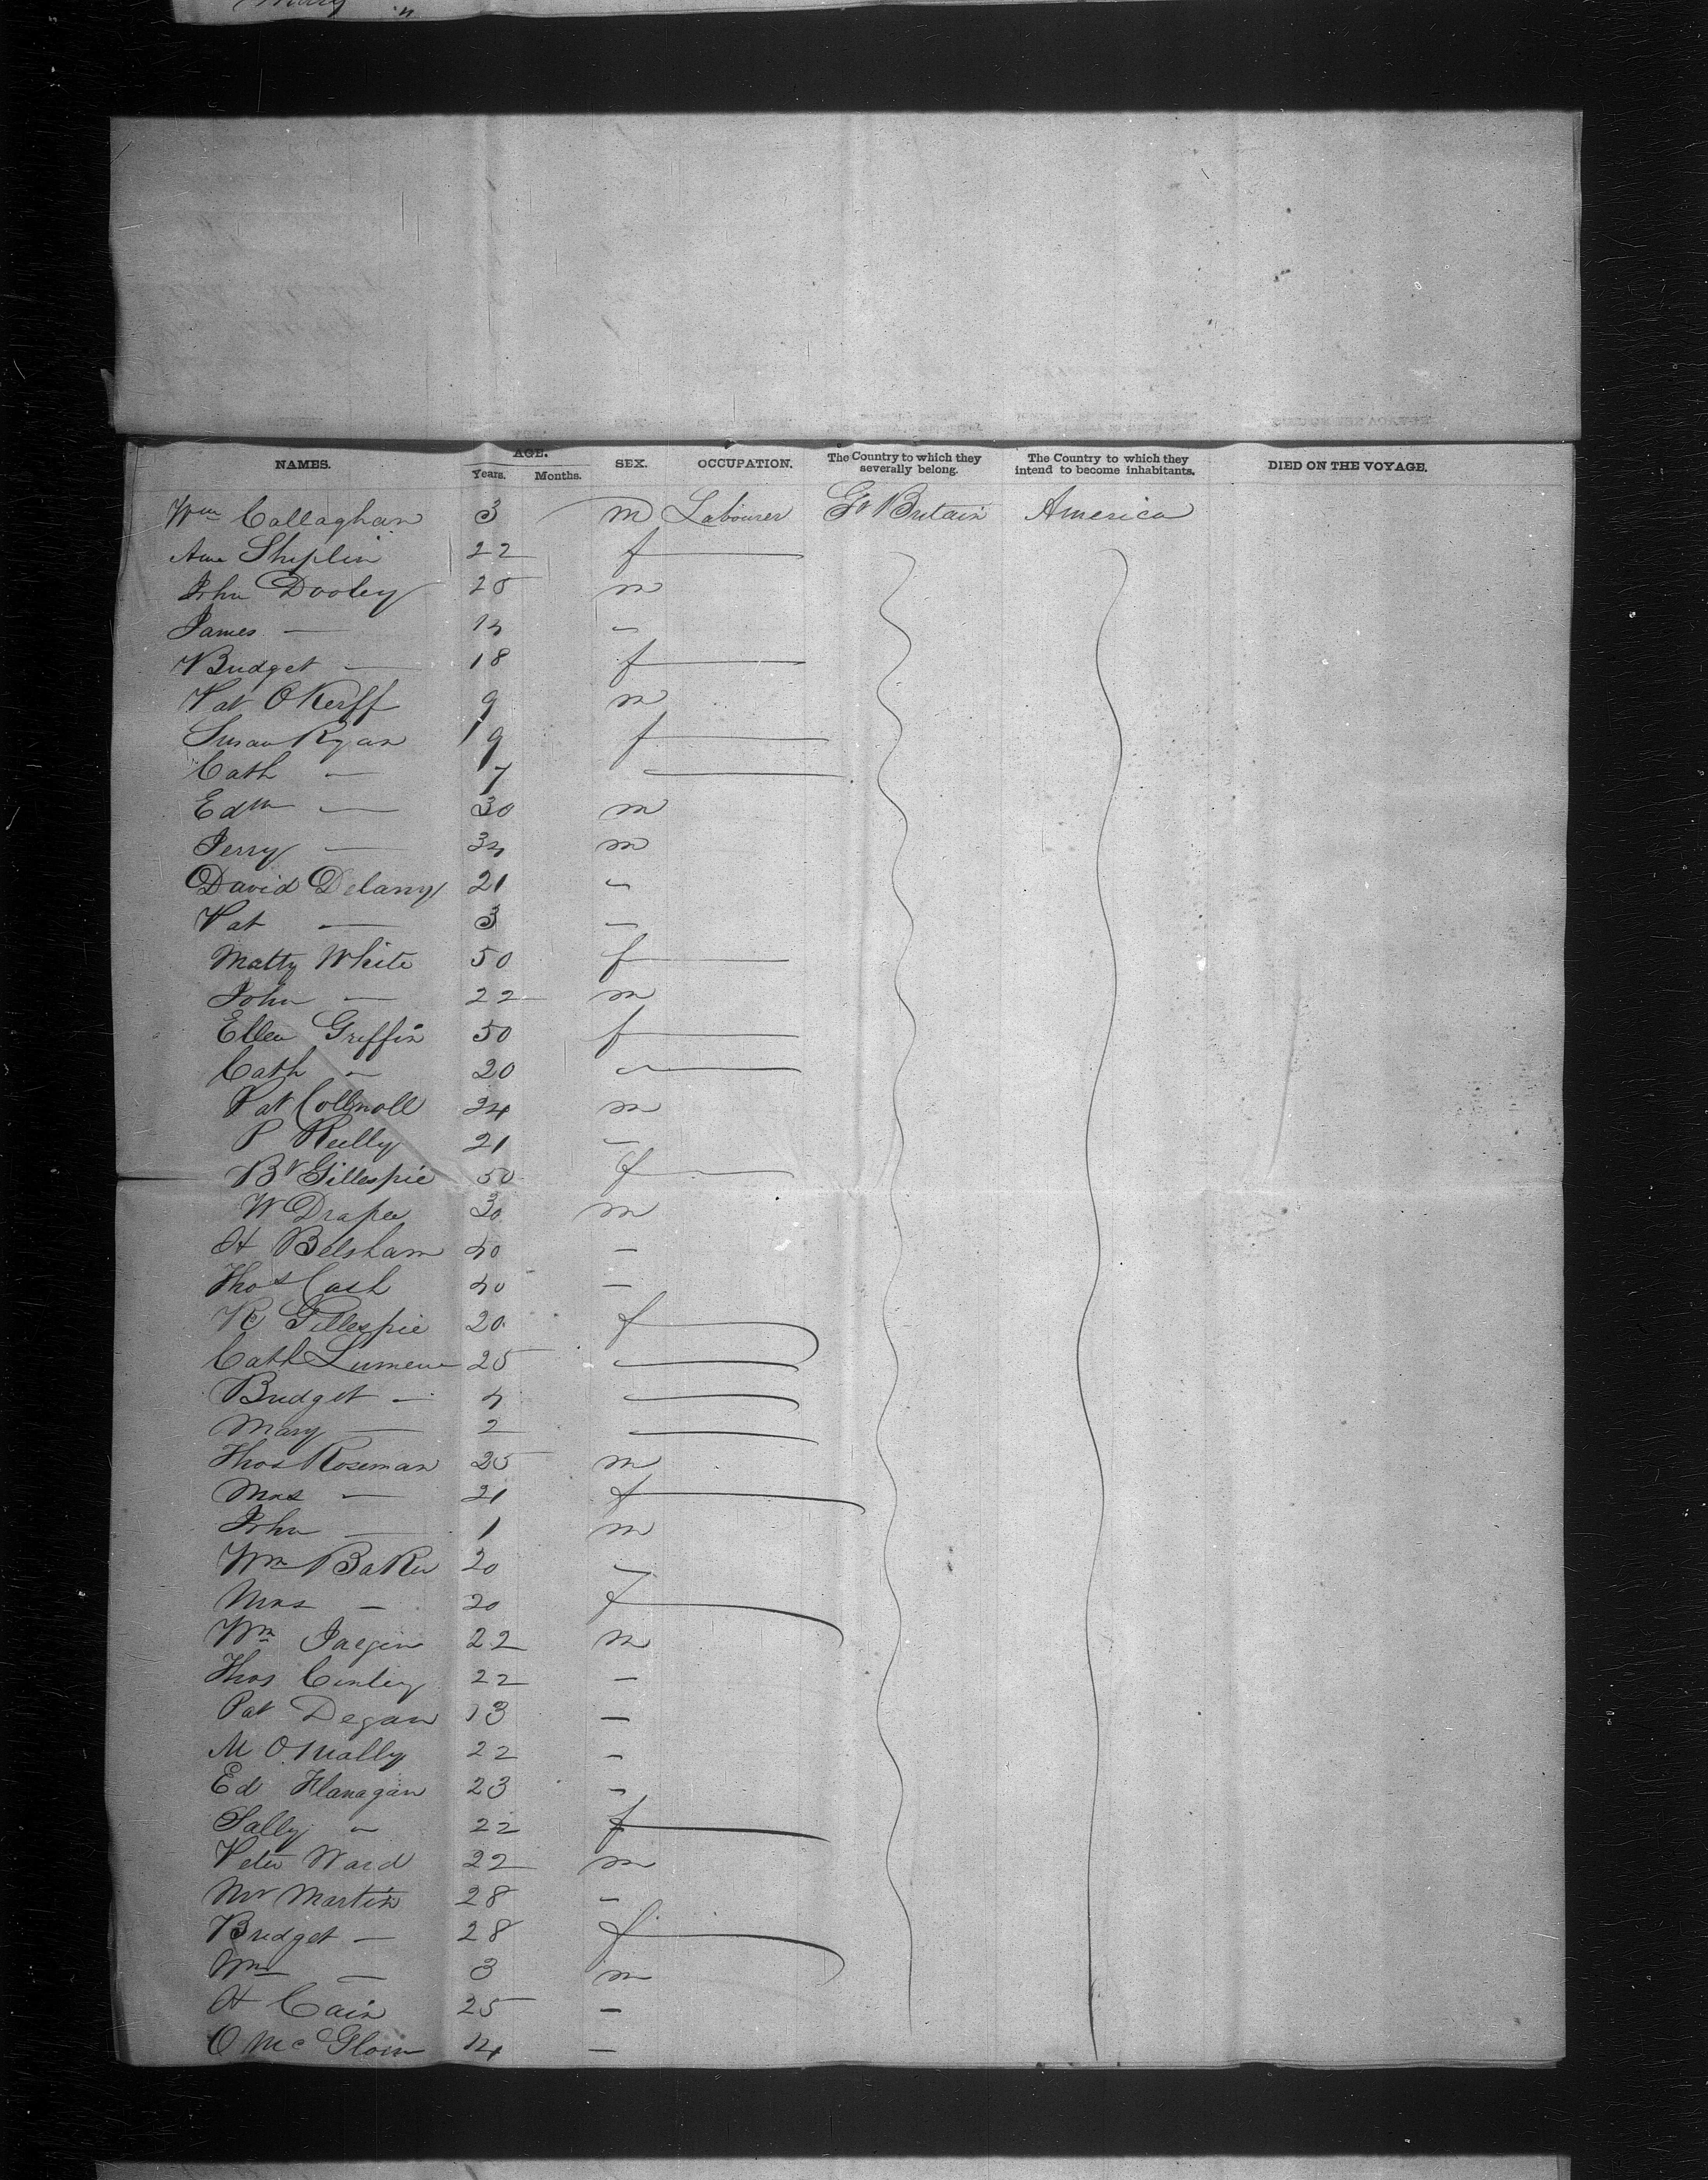 Mary "
NAMES. AGE. Years. Months. SEX. OCCUPATION. The Country to which they severally belong. The Country to which they intend to become inhabitants. DIED ON THE VOYAGE.
Wm Callaghan 3 m Labourer Gt Britain America
Ann Shiplin 22 f
John Dooley 25 m
James — 14 –
Bridget — 18 f
Pat OKerff 9 m
Susan Ryan 19 f
Cath — 7
Edm — 30 m
Jerry — 34 m
David Delany 21 –
Pat — 3 –
Matty White 50 f
John — 22 m
Ellen Griffin 50 f
Cath " 20
Pat 24 m
P Reilly 21 –
Bt Gillespie 50 f
W Draper 30 m
H Belsham 40 –
Thos Cash 40 –
Gillespie 20 f
Cath 25
Bridget — 4
Mary — 2
Thos Roseman 25 m
Mrs — 21 f
John — 1 m
Wm Baker 20 –
Mrs — 20 f
Wm 22 m
Thos 22 –
Pat Degan 13 –
M O Mally 22 –
Ed Flanagan 23 –
Sally " 22 f
Peter Ward 22 m
Mr Martin 28 –
Bridget — 28 f
Wm — 3 m
H Cain 25 –
O McGloin 14 –